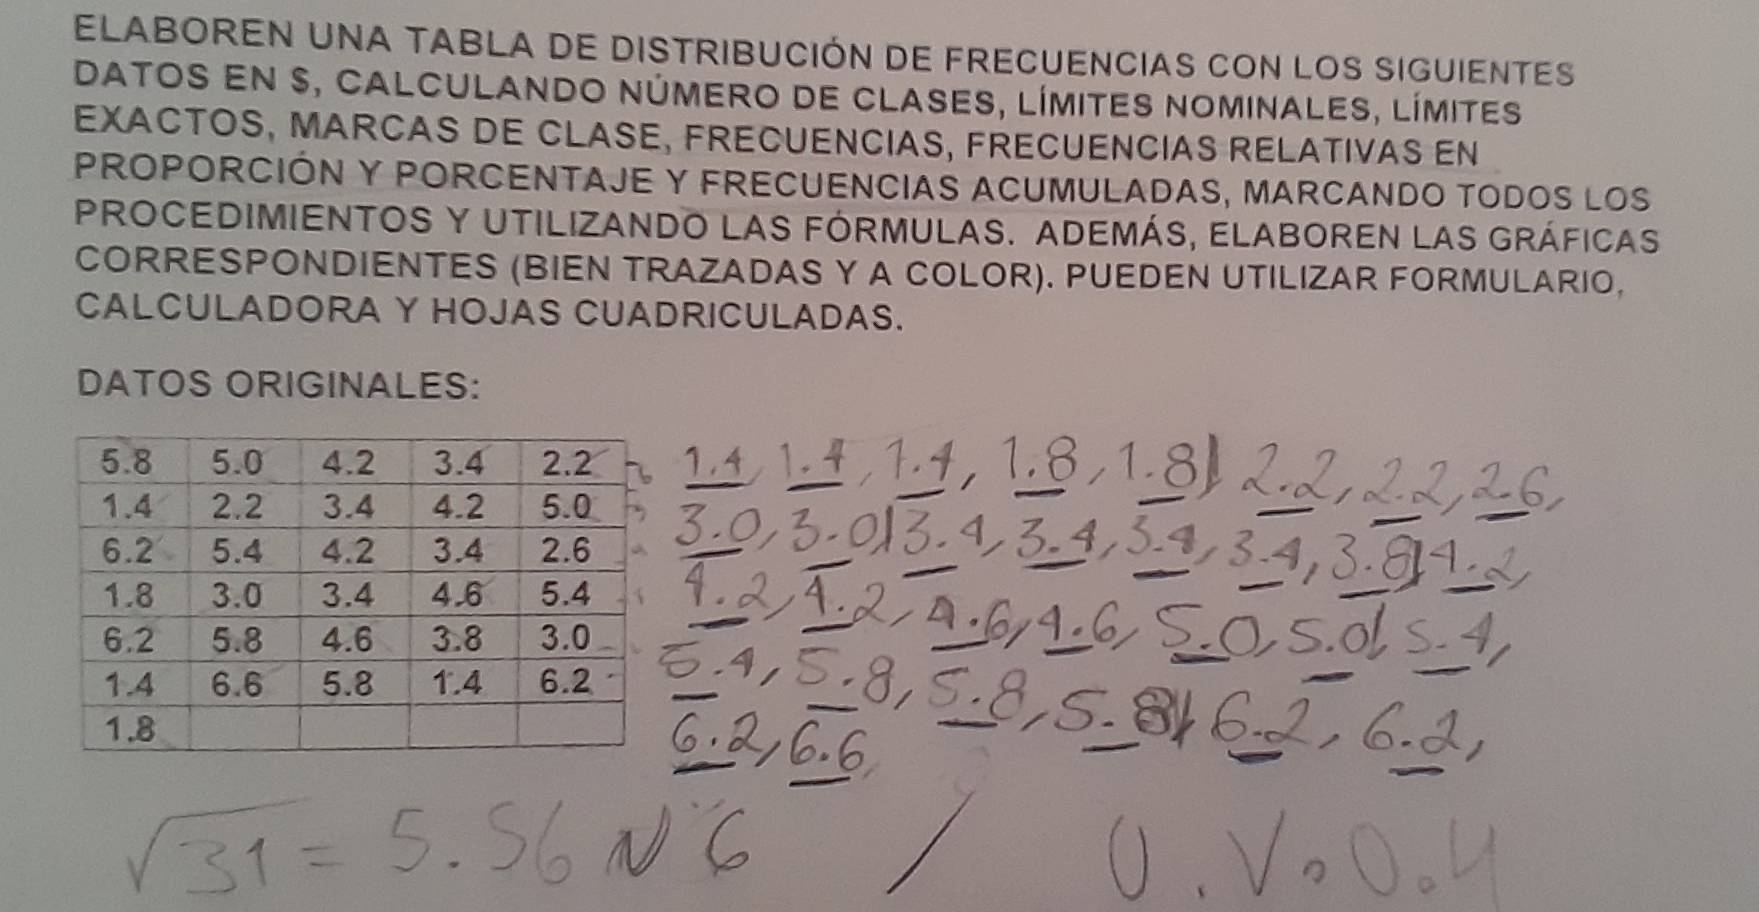 ELABOREN UNA TABLA DE DISTRIBUCIÓN DE FRECUENCIAS CON LOS SIGUIENTES
DATOS EN $, CALCULANDO NÚMERO DE CLASES, LÍMITES NOMINALES, LÍMITES
EXACTOS, MARCAS DE CLASE, FRECUENCIAS, FRECUENCIAS RELATIVAS EN
PROPORCIÓN Y PORCENTAJE Y FRECUENCIAS ACUMULADAS, MARCANDO TODOS LOS
PROCEDIMIENTOS Y UTILIZANDO LAS FÓRMULAS. ADEMÁS, ELABOREN LAS GRÁFICAS
CORRESPONDIENTES (BIEN TRAZADAS Y A COLOR). PUEDEN UTILIZAR FORMULARIO,
CALCULADORA Y HOJAS CUADRICULADAS.
DATOS ORIGINALES:
5.8 5.0 4.2 3.4 2.2
1.4 2.2 3.4 4.2 5.0
6.2 5.4 4.2 3.4 2.6
1.8 3.0 3.4 4.6 5.4
6.2 5.8 4.6 3.8 3.0
1.4 6.6 5.8 1.4 6.2
1.8
1.4, 1.4, 1.4, 1.8, 1.8| 2.2, 2.2, 2.6,
3.0, 3.0|3.4, 3.4, 3.4, 3.4, 3.8|4.2,
4.2, 4.2, 4.6, 4.6, 5.0, 5.0| 5.4,
5.4, 5.8, 5.8, 5.8| 6.2, 6.2,
6.2, 6.6,
√31 = 5.56 N 6 / U.V. 0.4